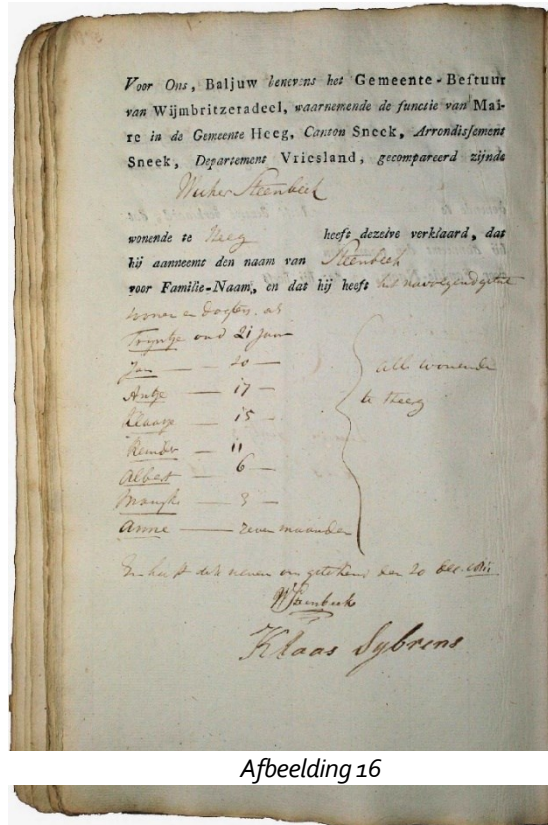 Voor Ons, Baljuw benevens het Gemeente-Bestuur
van Wijmbritzeradeel, waarnemende de functie van Mai-
re in de Gemeente Heeg, Canton Sneek, Arrondissement
Sneek, Departement Vriesland, gecompareerd zijnde
Steenbeek
wonende te Heeg heeft dezelve verklaard, dat
hij aanneemt den naam van Steenbeek
voor Familie-Naam, en dat hij heeft het navolgend getal
zonen en dogters, als
Tryntje oud 21 Jaar
Jan — 20 —
Antje — 17 —
Klaasje — 15
Reinder — 11
Albert — 6 —
— 3 —
Anne — zeven maanden
alle wonende
te Heeg
En heeft deze neven ons getekend den 20 dec. 1811
WSteenbeek
Klaas Sybrens
Afbeelding 16